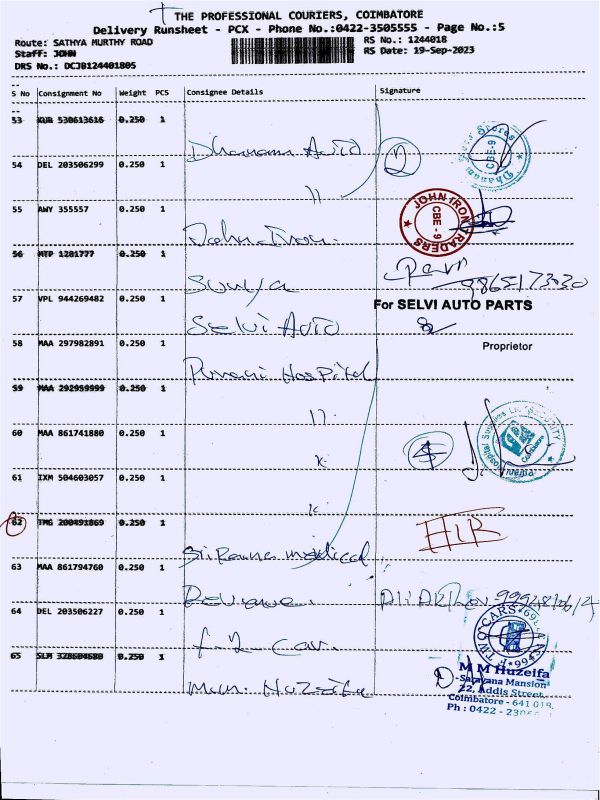 THE PROFESSIONAL COURIERS, COIMBATORE
Delivery Runsheet - PCX - Phone No.:0422-3505555 - Page No.:5
Route: SATHYA MURTHY ROAD
RS No.: 1244018
Staff: JOHN
RS Date: 19-Sep-2023
DRS No.: DCJB124401805
S No Consignment No Weight PCS Consignee Details Signature
53 KUR 530613616 0.250 1
Dhanam Auto 2
54 DEL 203506299 0.250 1
"
55 AWY 355557 0.250 1
JOHN IRON TRADERS CBE - 9
John Iron.
56 MTP 1281777 0.250 1
Surya
9865173030
57 VPL 944269482 0.250 1
For SELVI AUTO PARTS
Selvi Auto
58 MAA 297982891 0.250 1
Proprietor
Hospital
59 MAA 292959999 0.250 1
"
60 MAA 861741880 0.250 1
4
61 IXM 504603057 0.250 1
62 TMG 200491869 0.250 1
Medical
63 MAA 861794760 0.250 1
64 DEL 203506227 0.250 1
TWO CARS
f-2 Car.
65 SLM 328604680 0.250 1
M M Huzeifa
Saravana Mansion
22, Addis Street,
Coimbatore - 641 018.
Ph : 0422 -
Huzeifa